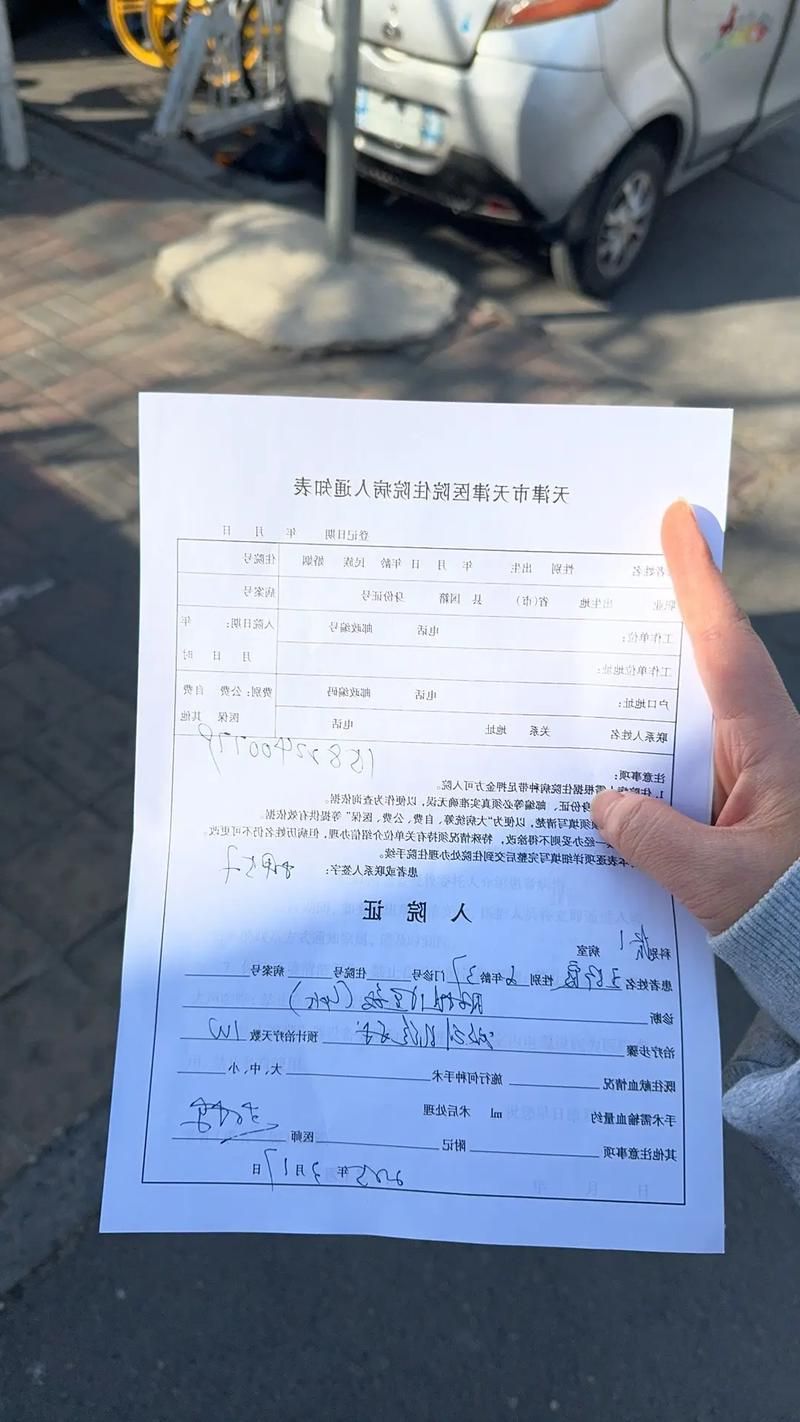 天津市天津医院住院病人通知表
登记日期 年 月 日
者姓名 性别 出生 年 月 日 年龄 民族 婚姻 住院号
职业 出生地 省(市) 县 国籍 身份证号 病案号
工作单位: 电话 邮政编号 入院日期: 年
工作单位地址: 月 日 时
户口地址: 电话 邮政编码 费别: 公费 自费
联系人姓名 关系 地址 电话 医保 其他
注意事项:
根据住院病种带足押金方可入院。
身份证、邮编等必须真实准确无误,以便作为查询依据。
须填写清楚,以便为"大病统筹、自费、公费、医保"等提供有效依据。
一经办妥则不得涂改,特殊情况须持有关单位介绍信办理,但病历姓名仍不可更改。
本表逐项详细填写完整后交到住院处办理住院手续。
患者或联系人签字:
入院证
科别 病室
患者姓名 性别 女 年龄 37 门诊号 住院号 病案号
诊断
治疗步骤 预计治疗天数 1W
既往献血情况 施行何种手术 大、中、小
手术需输血量约 ml 术后处理
其他注意事项 附记 医师
2025年3月17日